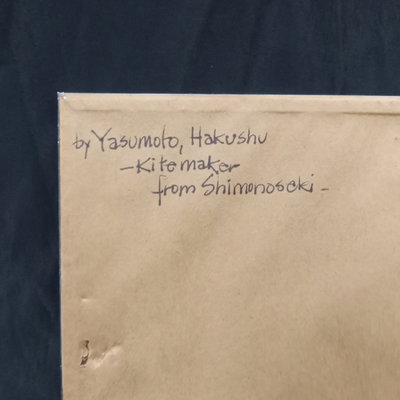 by Yasumoto, Hakushu
-Kitemaker
from Shimonoseki-